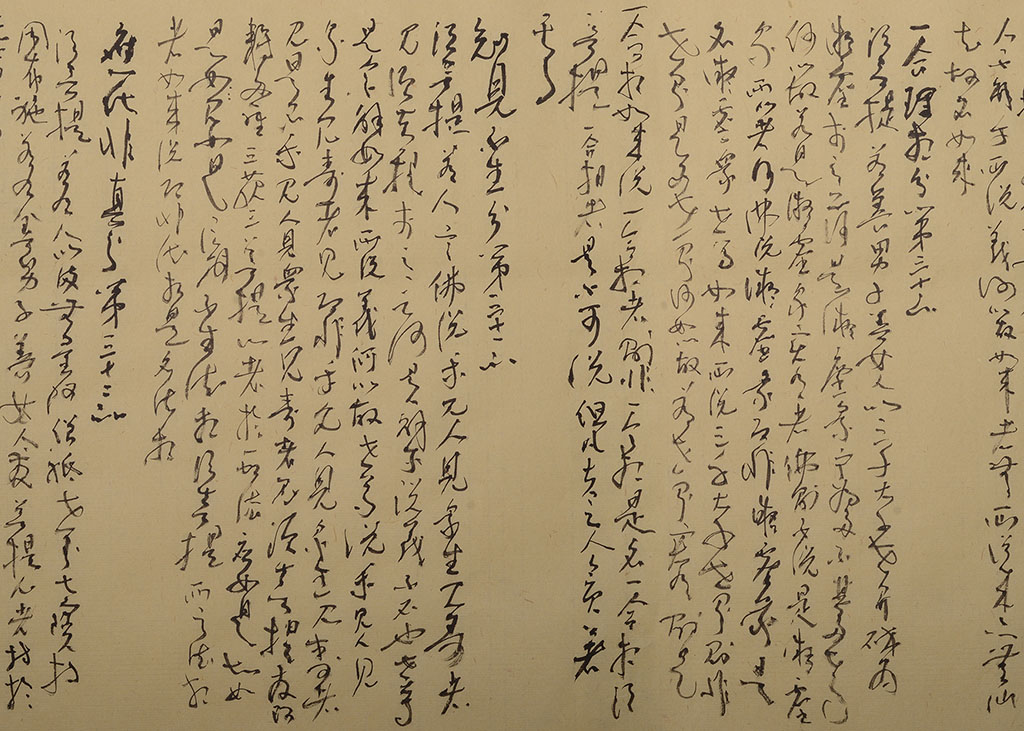 人不解我所說義何以故如來者無所從來亦無所
去故名如來
一合理相分第三十品
須菩提若善男子善女人以三千大千世界碎為
微塵於意云何是微塵眾寧為多不甚多世尊
何以故若是微塵眾實有者佛則不說是微塵
眾所以者何佛說微塵眾即非微塵眾是
名微塵眾世尊如來所說三千大千世界則非
世界是名世界何以故若世界實有則是
一合相如來說一合相者則非一合相是名一合相須
菩提一合相者是不可說但凡夫之人貪著
其事
知見不生分第三十一品
須菩提若人言佛說我見人見眾生見壽者
見須菩提於意云何是人解我所說義不不也世尊
是人不解如來所說義何以故世尊說我見人見
眾生見壽者見即非我見人見眾生見壽者
見是名我見人見眾生見壽者見須菩提發阿
耨多羅三藐三菩提心者於一切法應如是知如
是見如是信解不生法相須菩提所言法相
者如來說即非法相是名法相
應化非真分第三十二品
須菩提若有人以滿無量阿僧祇世界七寶持
用布施若有善男子善女人發菩提心者持於